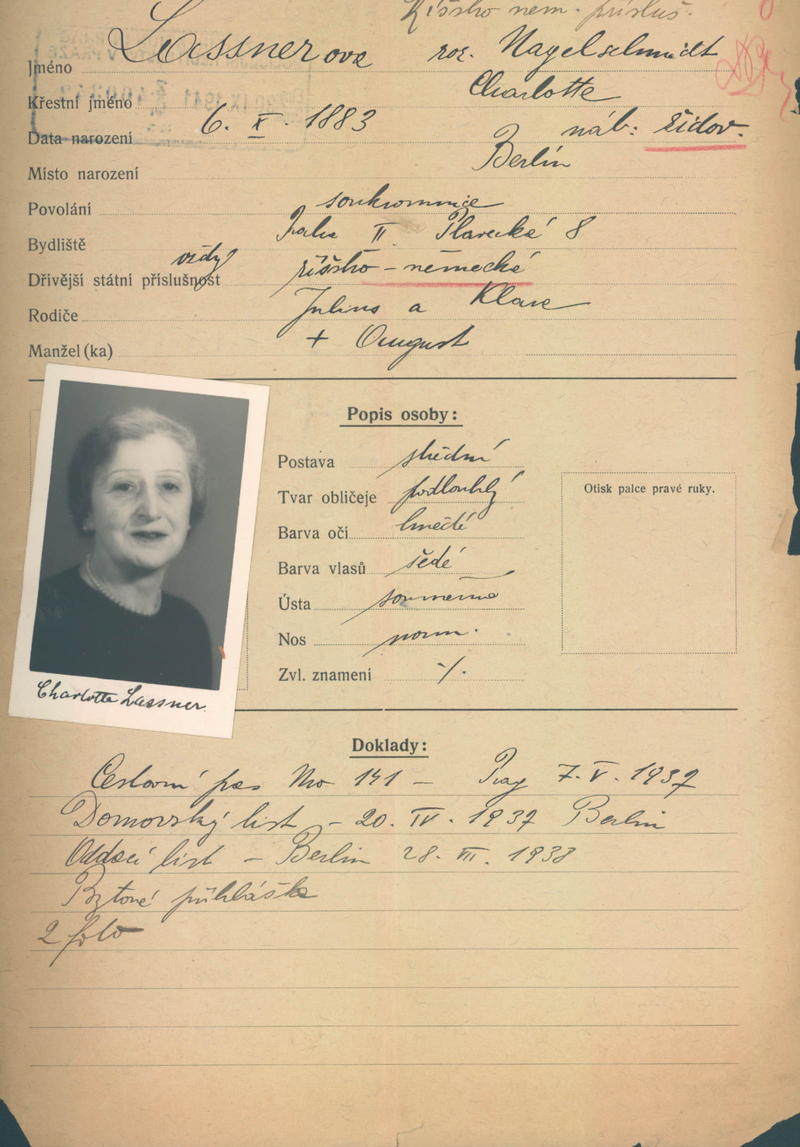 říšsko něm. přísluš.
Jméno Lassnerova roz. Nagelschmidt
Křestní jméno Charlotte
Data narození 6. X. 1883 náb: židov.
Místo narození Berlín
Povolání soukromnice
Bydliště Praha II Plavecká 8
Dřívější státní příslušnost vždy říšsko-německá
Rodiče Julius a Klare
Manžel (ka) + August
Popis osoby:
Postava střední
Tvar obličeje podlouhlý
Otisk palce pravé ruky.
Barva očí hnědé
Barva vlasů šedé
Ústa souměrná
Nos norm.
Zvl. znamení ·/.
Charlotte Lassner.
Doklady:
Cestovní pas No 141 — Prag 7. V. 1937
Domovský list - 20. IV. 1937 Berlin
Oddací list - Berlin 28. III. 1938
Bytové přihláška
2 foto